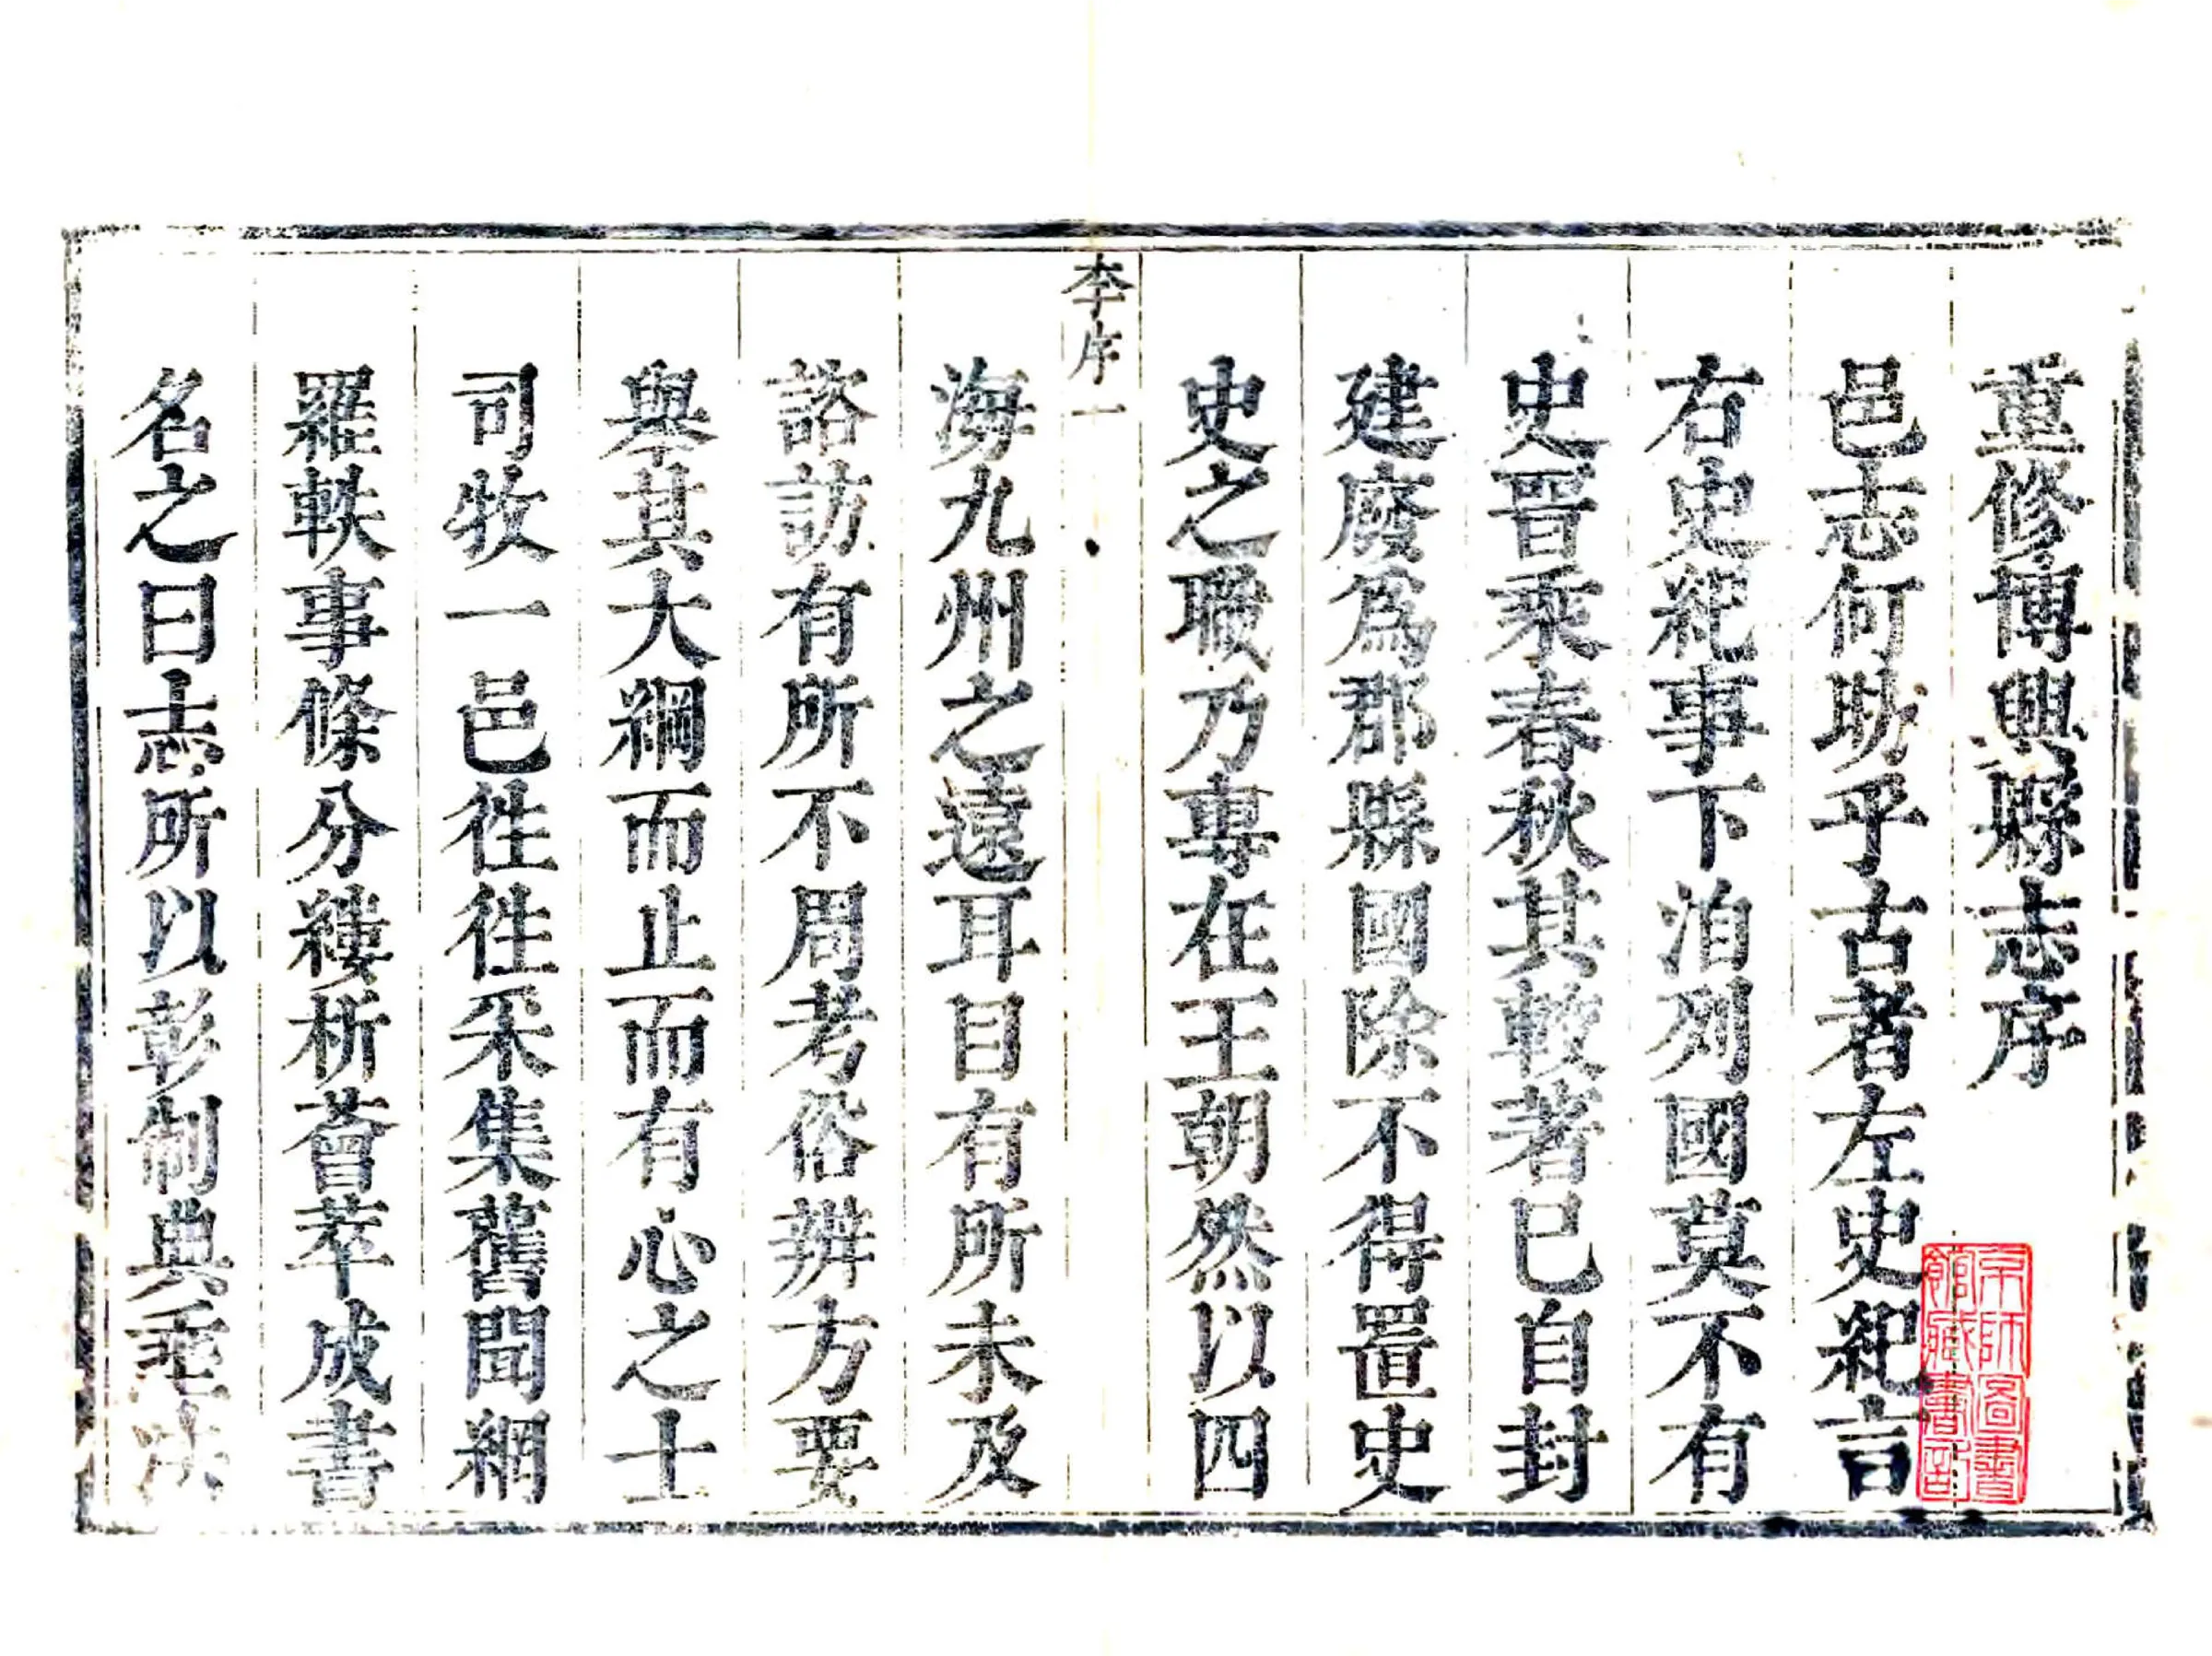 重修博興縣志序
邑志何昉乎古者左史紀言
右史紀事下洎列國莫不有
史晉乘春秋其較著已自封
建廢爲郡縣國除不得置史
史之職乃專在王朝然以四
李序 一
海九州之遠耳目有所未及
諮訪有所不周考俗辨方要
舉其大綱而止而有心之士
司牧一邑徃徃采集舊聞網
羅軼事條分縷析薈萃成書
名之曰志所以彰制典垂法
京師圖書
館藏書記